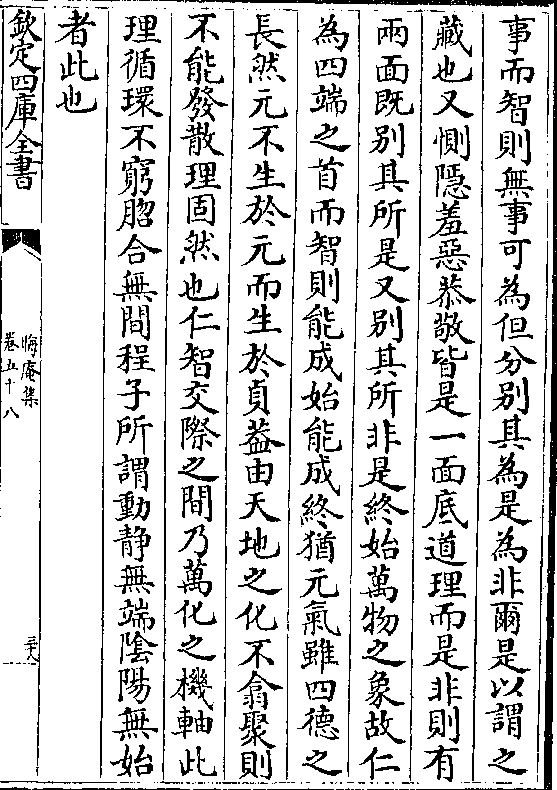 事而智則無事可為但分别其為是為非爾是以謂之
藏也又惻隱羞惡恭敬皆是一面底道理而是非則有
兩面既别其所是又别其所非是終始萬物之象故仁
為四端之首而智則能成始能成終猶元氣雖四德之
長然元不生於元而生於貞葢由天地之化不翕聚則
不能發散理固然也仁智交際之間乃萬化之機軸此
理循環不窮脗合無間程子所謂動靜無端陰陽無始
者此也
欽定四庫全書
晦庵集
卷五十八
三十八